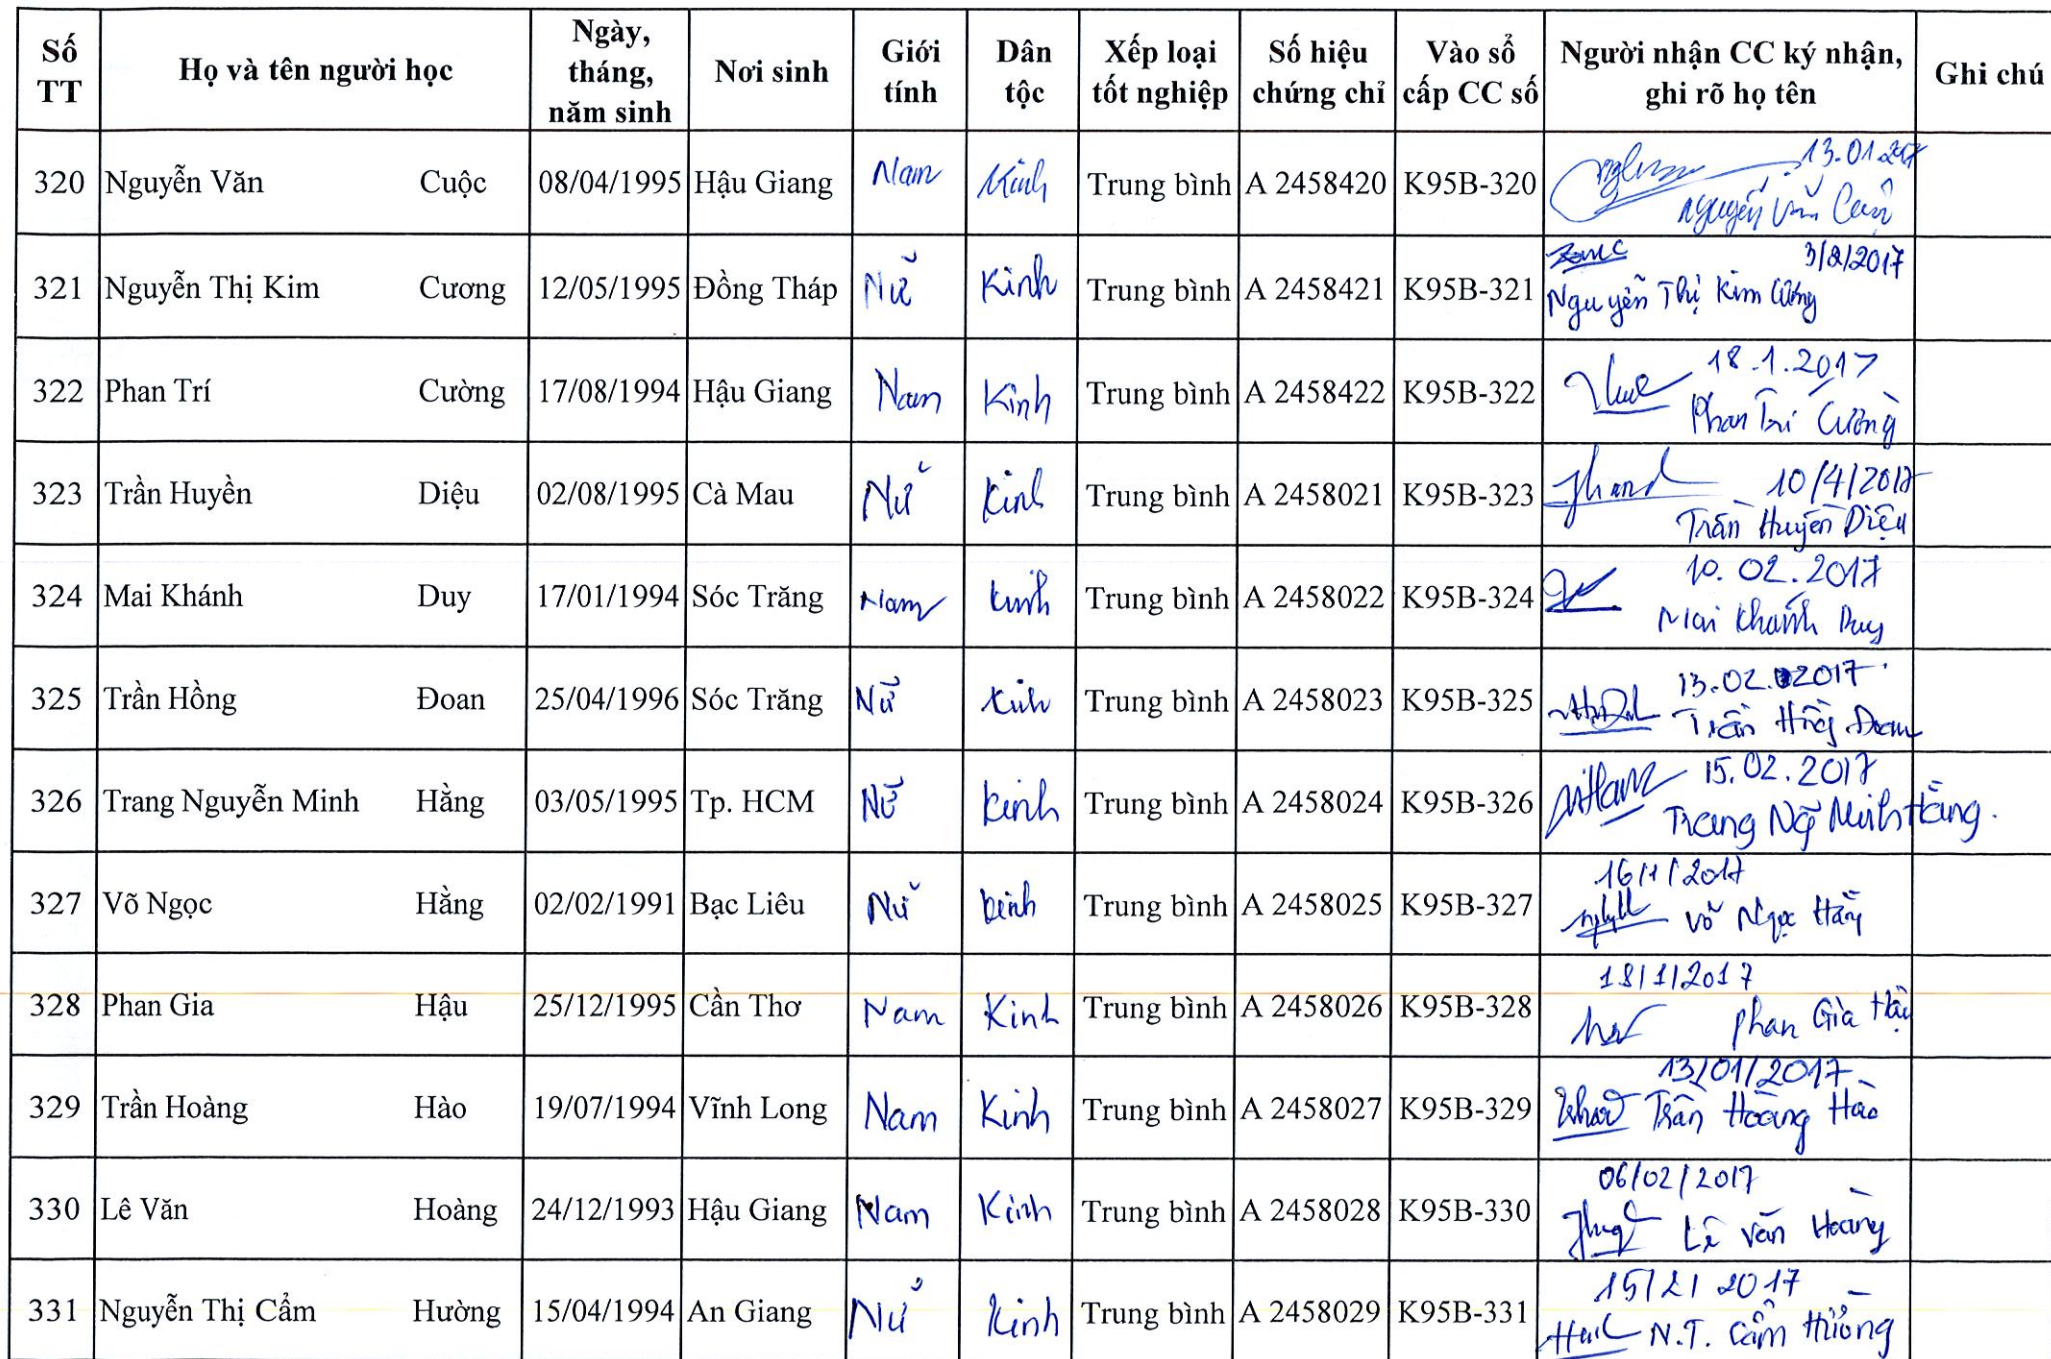 Số TT Họ và tên người học Ngày, tháng, năm sinh Nơi sinh Giới tính Dân tộc Xếp loại tốt nghiệp Số hiệu chứng chỉ Vào sổ cấp CC số Người nhận CC ký nhận, ghi rõ họ tên Ghi chú
320 Nguyễn Văn Cuộc 08/04/1995 Hậu Giang Nam Kinh Trung bình A 2458420 K95B-320 13.01.2017
Nguyễn Văn Cuộc
321 Nguyễn Thị Kim Cương 12/05/1995 Đồng Tháp Nữ Kinh Trung bình A 2458421 K95B-321 3/2/2017
Nguyễn Thị Kim Cương
322 Phan Trí Cường 17/08/1994 Hậu Giang Nam Kinh Trung bình A 2458422 K95B-322 18.1.2017
Phan Trí Cường
323 Trần Huyền Diệu 02/08/1995 Cà Mau Nữ Kinh Trung bình A 2458021 K95B-323 10/4/2017
Trần Huyền Diệu
324 Mai Khánh Duy 17/01/1994 Sóc Trăng Nam Kinh Trung bình A 2458022 K95B-324 10.02.2017
Mai Khánh Duy
325 Trần Hồng Đoan 25/04/1996 Sóc Trăng Nữ Kinh Trung bình A 2458023 K95B-325 13.02.2017
Trần Hồng Đoan
326 Trang Nguyễn Minh Hằng 03/05/1995 Tp. HCM Nữ Kinh Trung bình A 2458024 K95B-326 15.02.2017
Trang Ng̃ Minh Hằng.
327 Võ Ngọc Hằng 02/02/1991 Bạc Liêu Nữ Kinh Trung bình A 2458025 K95B-327 16/1/2017
Võ Ngọc Hằng
328 Phan Gia Hậu 25/12/1995 Cần Thơ Nam Kinh Trung bình A 2458026 K95B-328 18/1/2017
Phan Gia Hậu
329 Trần Hoàng Hào 19/07/1994 Vĩnh Long Nam Kinh Trung bình A 2458027 K95B-329 13/01/2017
Trần Hoàng Hào
330 Lê Văn Hoàng 24/12/1993 Hậu Giang Nam Kinh Trung bình A 2458028 K95B-330 06/02/2017
Lê Văn Hoàng
331 Nguyễn Thị Cẩm Hường 15/04/1994 An Giang Nữ Kinh Trung bình A 2458029 K95B-331 15/2/2017
N.T. Cẩm Hường